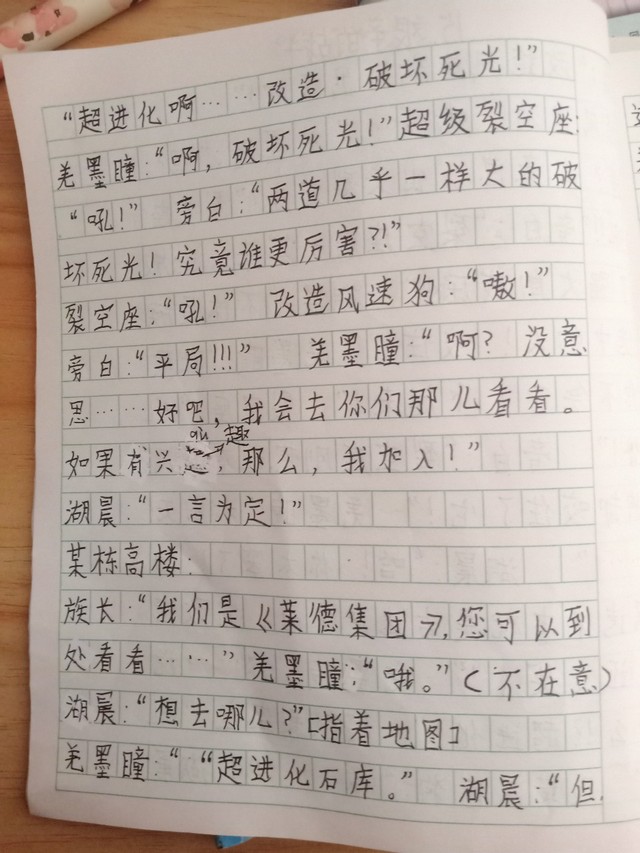 “超进化啊……改造·破坏死光！”
羌墨瞳：“啊，破坏死光！”超级裂空座：
“吼！” 旁白：“两道几乎一样大的破
坏死光！究竟谁更厉害？！”
裂空座：“吼！” 改造风速狗：“嗷！”
旁白：“平局！！！” 羌墨瞳：“啊？没意
思……好吧，我会去你们那儿看看。
如果有兴趣，那么，我加入！”
湖晨：“一言为定！”
某栋高楼：
族长：“我们是《莱德集团》，您可以到
处看看……” 羌墨瞳：“哦。”（不在意）
湖晨：“想去哪儿？”［指着地图］
羌墨瞳：“ “超进化石库。” 湖晨：“但